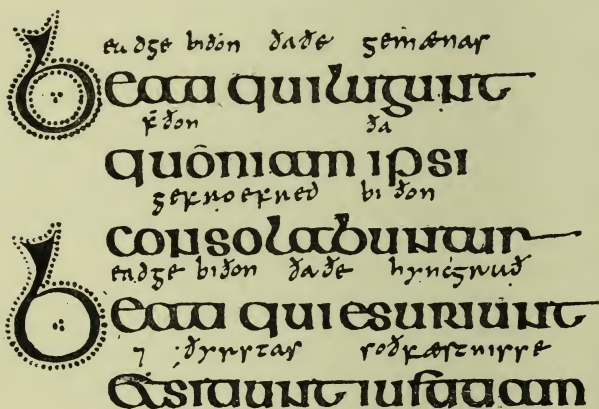 eadge biðon ða ðe gemænas
Beati qui lugunt
fðon ða
quōniam ipsi
gefroefred biðon
consolabuntur
eadge biðon ða ðe hyncgrað
Beati qui esuriunt
⁊ ðyrstas soðfæstnisse
& sitiunt iustitiam